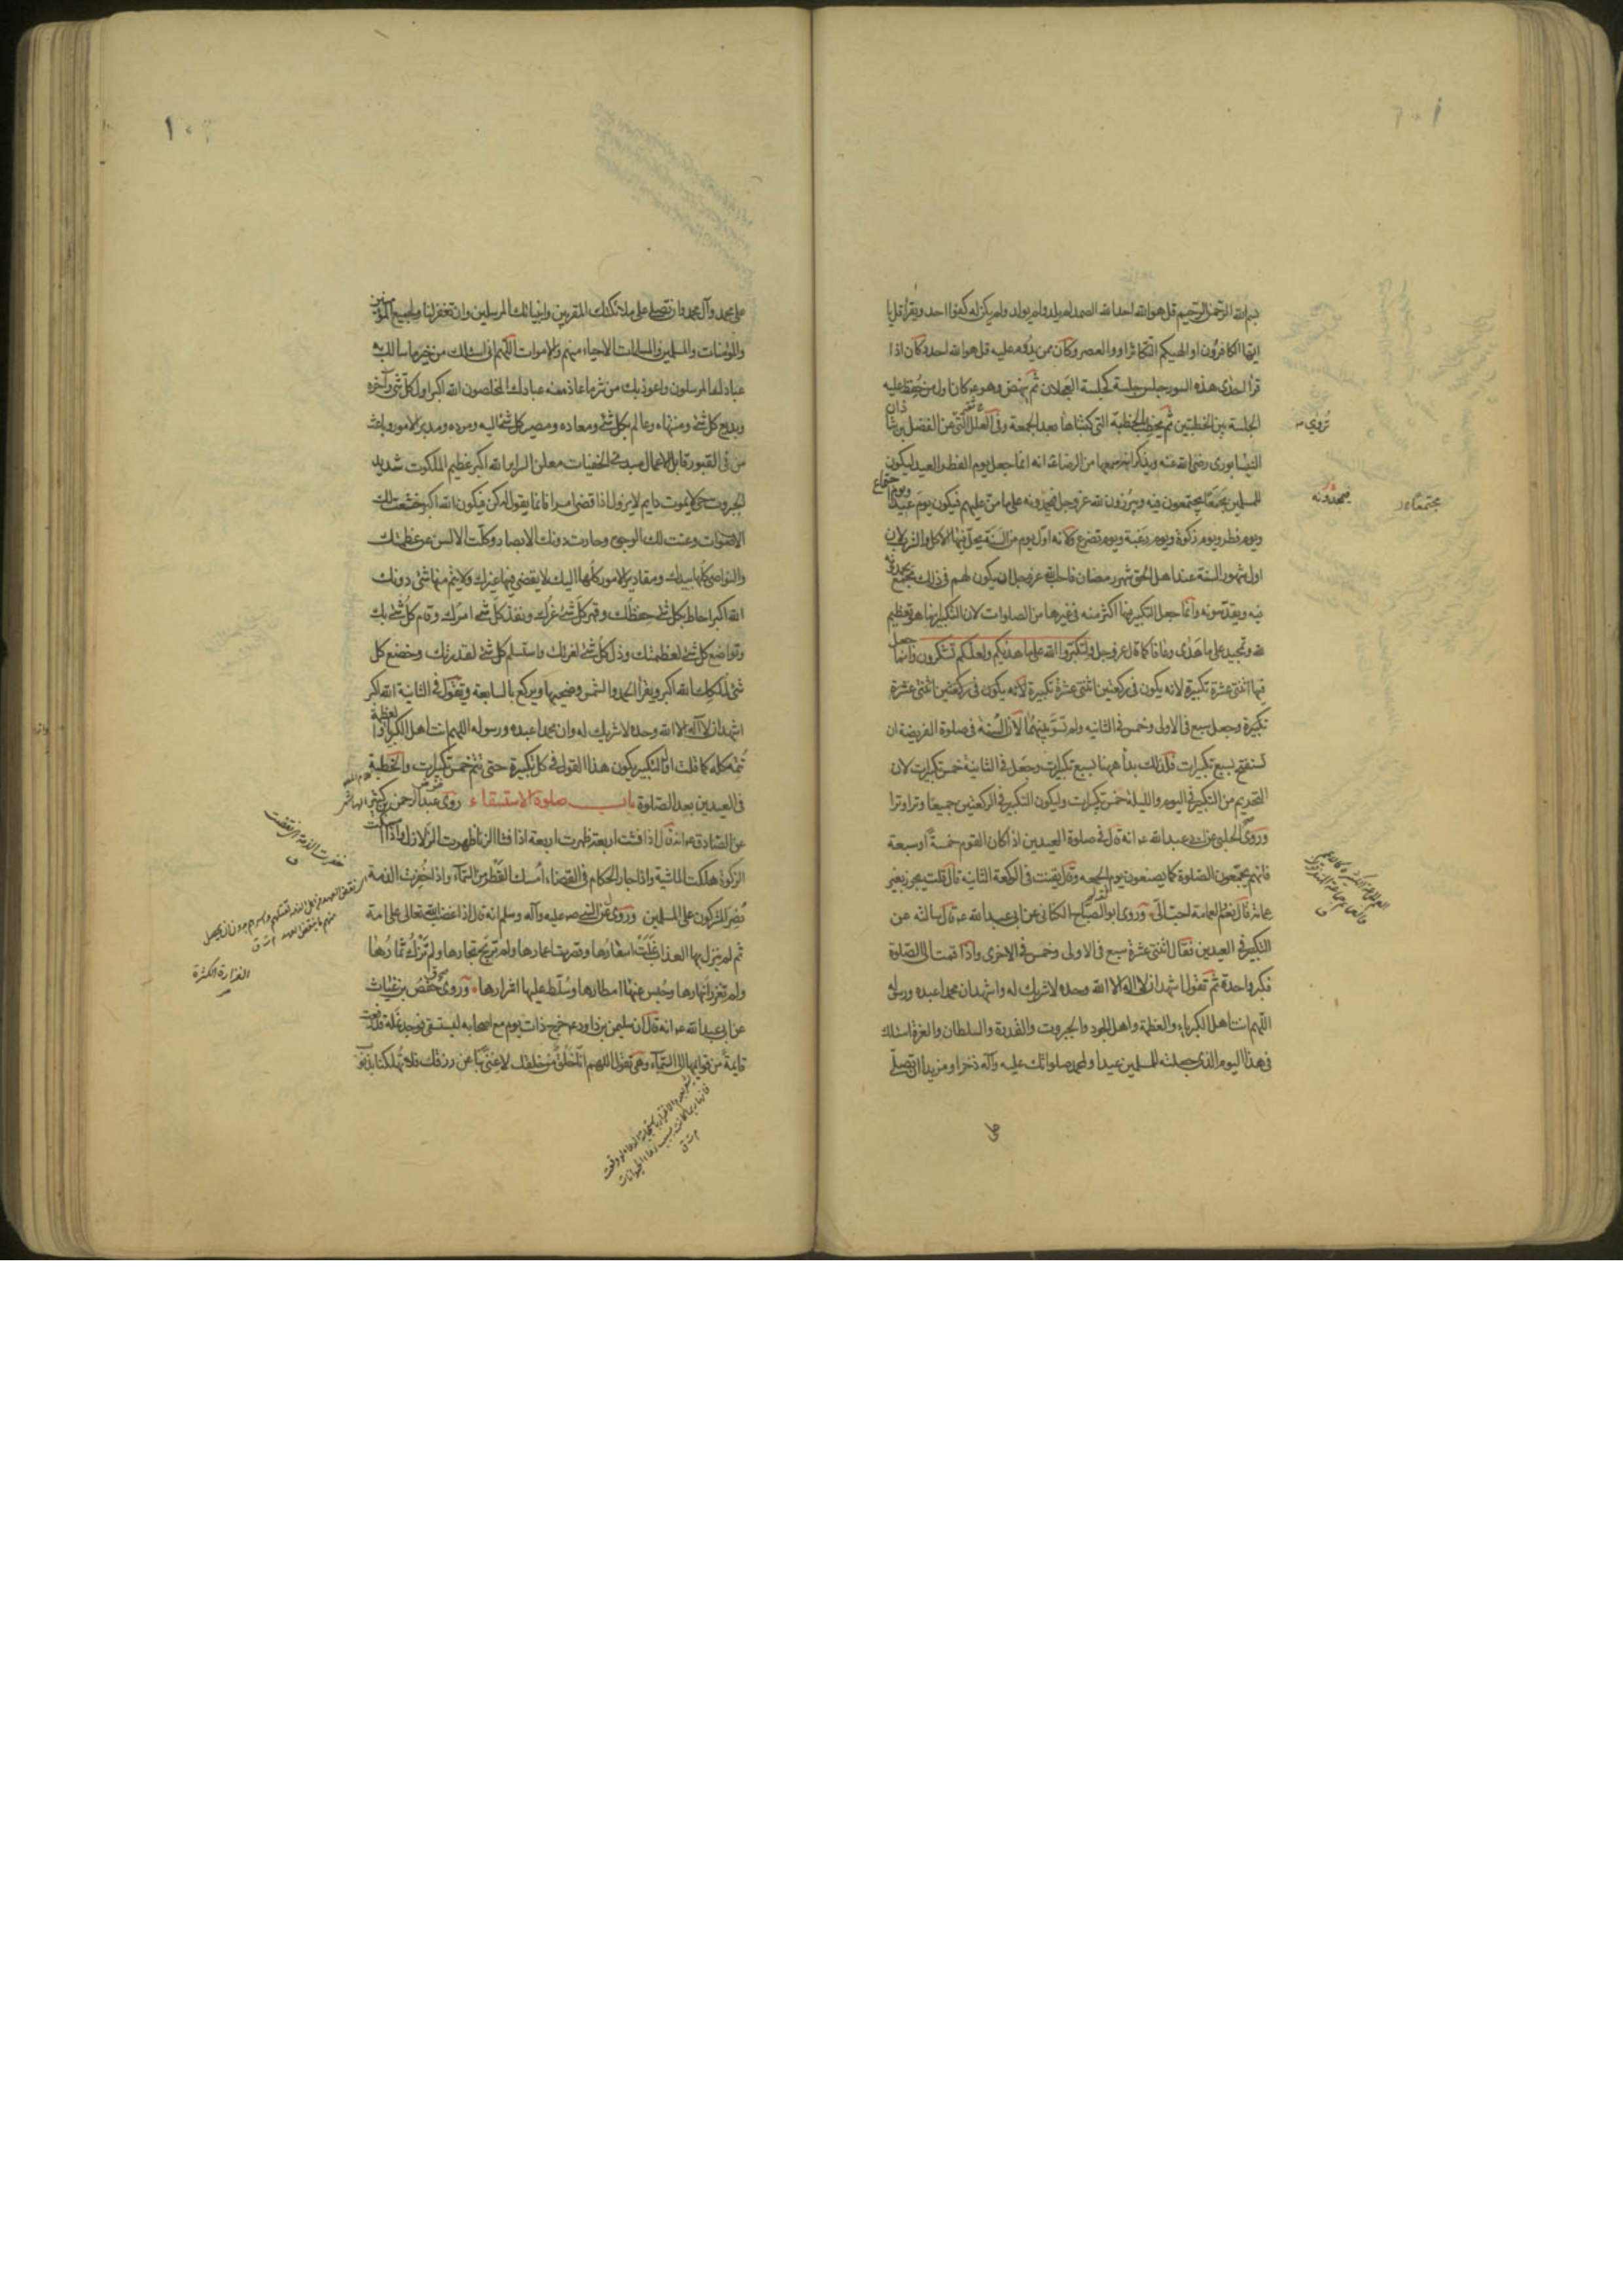 بسم الله الرحمن الرحيم قل هو الله احد الله الصمد لم يلد ولم يولد ولم يكن له كفوا احد ويقرأ قل يا
ايها الكافرون او الهيكم التكاثر او والعصر وكان مما يدوم عليه قل هو الله احد وكان اذا
قرأ احدى هذه السور جلس جلسة كجلسة العجلان ثم ينهض وهو ع كان اول من حفظ عليه
الجلسة بين الخطبتين ثم يخطب بالخطبة التي كتبناها بعد الجمعة وفي العلل التي عن الفضل بن شاذان
النيسابوري رضي الله عنه ويذكر انه سمعها من الرضا ع انه انما جعل يوم الفطر العيد ليكون
للمسلمين مجتمعا يجتمعون فيه ويبرزون لله عز وجل فيمجدونه على ما من عليهم فيكون يوم عيد ويوم اجتماع
ويوم فطر ويوم زكوة ويوم رغبة ويوم تضرع ولانه اول يوم من السنة يحل فيها الاكل والشرب لان
اول شهور السنة عند اهل الحق شهر رمضان فاحب الله عز وجل ان يكون لهم في ذلك مجمع يحمدونه
فيه ويقدسونه وانما جعل التكبير فيها اكثر منه في غيرها من الصلوات لان التكبير انما هو تعظيم
لله وتمجيد على ما هدى وعافا كما قال عز وجل ولتكبروا الله على ما هديكم ولعلكم تشكرون وانما جعل
فيها اثنتى عشرة تكبيرة لانه يكون في ركعتين اثنتى عشرة تكبيرة لانه يكون في ركعتين اثنتى عشرة
تكبيرة وجعل سبع في الاولى وخمس في الثانيه ولم تسو بينهما لان السنة في صلوة الفريضة ان
تستفتح بسبع تكبيرات فلذلك بدأ ههنا بسبع تكبيرات وجعل في الثانية خمس تكبيرات لان
التحريم من التكبير في اليوم والليلة خمس تكبيرات وليكون التكبير في الركعتين جميعا وترا وترا
وروى الحلبي عن ابي عبد الله ع انه قال في صلوة العيدين اذا كان القوم خمسة او سبعة
فانهم يجمعون الصلوة كما يصنعون يوم الجمعه وقال يقنت في الركعة الثانيه قال قلت يجوز بغير
عمامة قال نعم والعمامة احب الي وروى ابو الصباح الكناني عن ابي عبد الله ع قال سالته عن
التكبير في العيدين فقال اثنتى عشرة سبع في الاولى وخمس في الاخرى واذا قمت الى الصلوة
فكبر واحدة ثم تقول اشهد ان لا اله الا الله وحده لا شريك له واشهد ان محمدا عبده ورسوله
اللهم انت اهل الكبرياء والعظمة واهل الجود والجبروت والقدرة والسلطان والعزة اسئلك
في هذا اليوم الذي جعلته للمسلمين عيدا ولمحمد صلواتك عليه وآله ذخرا ومزيدا ان تصلي
على
يمجدونه
على محمد وآل محمد وان تصلي على ملائكتك المقربين وانبيائك المرسلين وان تغفر لنا ولجميع المؤمنين
والمؤمنات والمسلمين والمسلمات الاحياء منهم والاموات اللهم اني اسئلك من خير ما سالك به
عبادك المرسلون واعوذ بك من شر ما عاذ منه عبادك المخلصون الله اكبر اول كل شئ وآخره
وبديع كل شئ ومنتهاه وعالم بكل شئ ومعاده ومصير كل شئ اليه ومرده ومدبر الامور وباعث
من في القبور قابل الاعمال مبدئ الخفيات معلن السراير الله اكبر عظيم الملكوت شديد
الجبروت حي لا يموت دايم لا يزول اذا قضى امرا فانما يقول له كن فيكون الله اكبر خشعت لك
الاصوات وعنت لك الوجوه وحارت دونك الابصار وكلت الالسن عن عظمتك
والنواصي كلها بيدك ومقادير الامور كلها اليك لا يقضي فيها غيرك ولا يتم منها شئ دونك
الله اكبر احاط بكل شئ حفظك وقهر كل شئ عزك ونفذ كل شئ امرك وقام كل شئ بك
وتواضع كل شئ لعظمتك وذل كل شئ لعزتك واستسلم كل شئ لقدرتك وخضع كل
شئ لملكك الله اكبر ويقرأ الحمد والشمس وضحيها ويركع بالسابعة وتقول في الثانية الله اكبر
اشهد ان لا اله الا الله وحده لا شريك له وان محمدا عبده ورسوله اللهم انت اهل الكبرياء والعظمة
تتمه كله كما قلت اول التكبير يكون هذا القول في كل تكبيرة حتى تتم خمس تكبيرات والخطبة
في العيدين بعد الصلوة باب صلوة الاستسقاء روى عبد الرحمن بن كثير
عن الصادق ع انه قال اذا فشت اربعة ظهرت اربعة اذا فشا الزنا ظهرت الزلازل واذا امسكت
الزكوة هلكت الماشية واذا جار الحكام في القضاء امسك القطر من السماء واذا خفرت الذمة
نصر المشركون على المسلمين وروى عن النبي صلى الله عليه وآله وسلم انه قال اذا غضب الله تعالى على امة
ثم لم ينزل بها العذاب غلت اسعارها وقصرت اعمارها ولم تربح تجارها ولم تزك ثمارها
ولم تغزر انهارها وحبس عنها امطارها وسلط عليها اشرارها وروى حفص بن غياث
عن ابي عبد الله ع انه قال ان سليمن بن داود ع خرج ذات يوم مع اصحابه ليستسقي فوجد نملة قد رفعت
قايمة من قوايمها الى السماء وهي تقول اللهم انا خلق من خلقك لا غنى بنا عن رزقك فلا تهلكنا بذنوب
الغزارة الكثرة